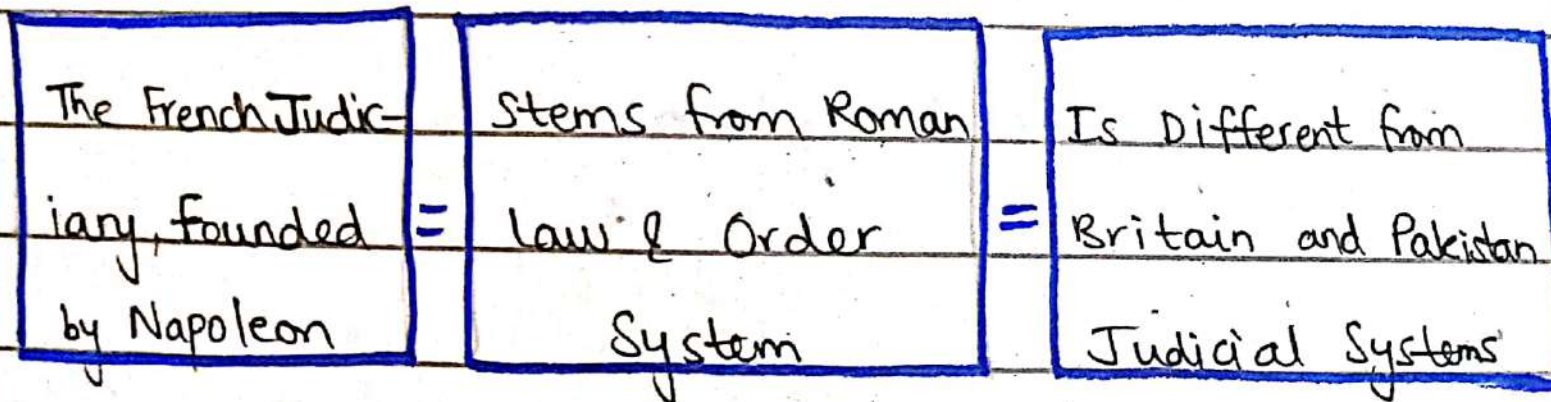 The French Judic-
iary, founded
by Napoleon
=
Stems from Roman
law & Order
System
=
Is Different from
Britain and Pakistan
Judicial Systems